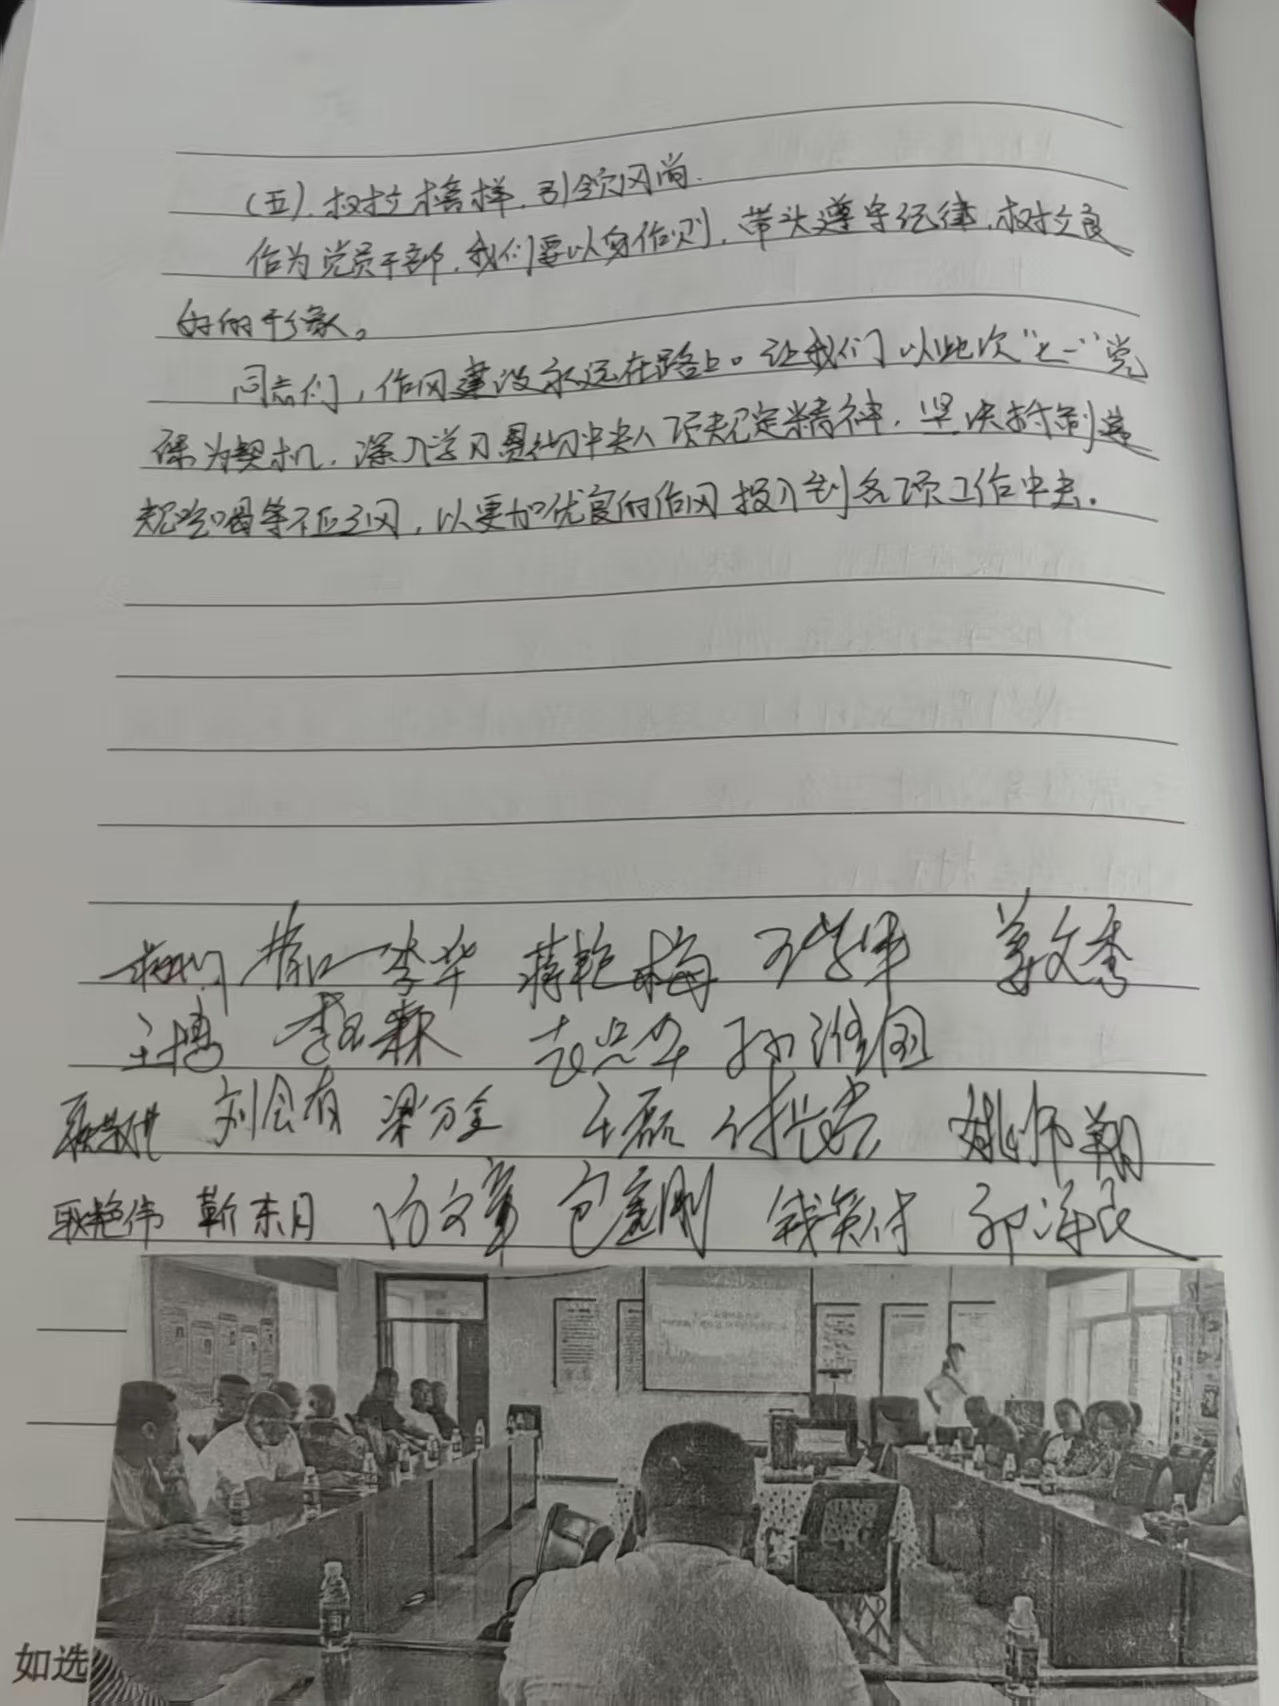 (五).树立榜样,引领风尚.
作为党员干部,我们要以身作则,带头遵守纪律,树立良
好的形象。
同志们,作风建设永远在路上。让我们以此次“七一”党
课为契机,深入学习贯彻中央八项规定精神,坚决抵制违
规吃喝等不正之风,以更加优良的作风投入到各项工作中去.
李华 蒋艳梅 姜文秀
王博 孙维国
刘会有 梁万全 王磊 姚帅翔
耿艳伟 靳东月 包建刚 郭海良
如选